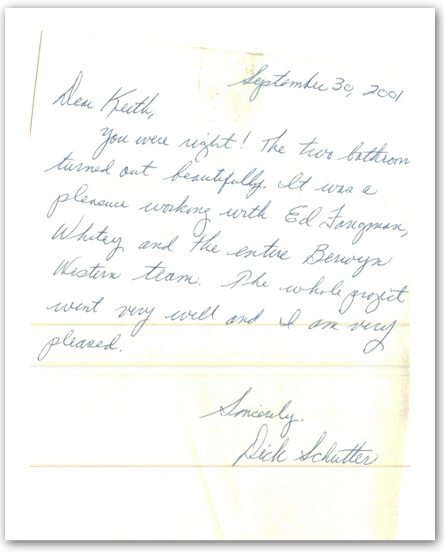 September 30, 2001
Dear Keith,
You were right! The two bathroom
turned out beautifully. It was a
pleasure working with Ed Fangman,
Whitey and the entire Berwyn
Western team. The whole project
went very well and I am very
pleased.
Sincerely.
Dick Schutter